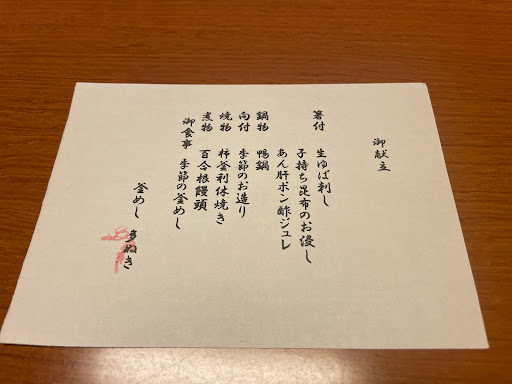 御献立
箸付 生ゆば刺し
子持ち昆布のお浸し
あん肝ポン酢ジュレ
鍋物 鴨鍋
向付 季節のお造り
焼物 柿釜利休焼き
煮物 百合根饅頭
御食事 季節の釜めし
釜めし まぬき